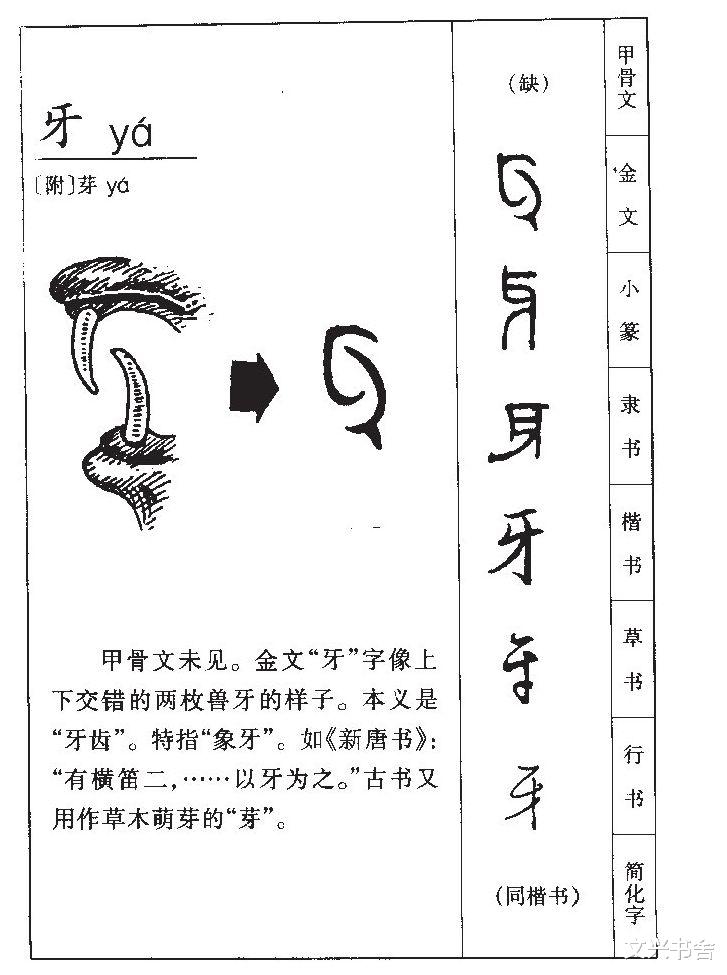 牙 yá
〔附〕芽 yá
甲骨文未见。金文“牙”字像上
下交错的两枚兽牙的样子。本义是
“牙齿”。特指“象牙”。如《新唐书》:
“有横笛二,……以牙为之。”古书又
用作草木萌芽的“芽”。
(缺)
甲骨文
金文
小篆
隶书
牙
楷书
草书
牙
行书
(同楷书)
简化字
文兴书舍